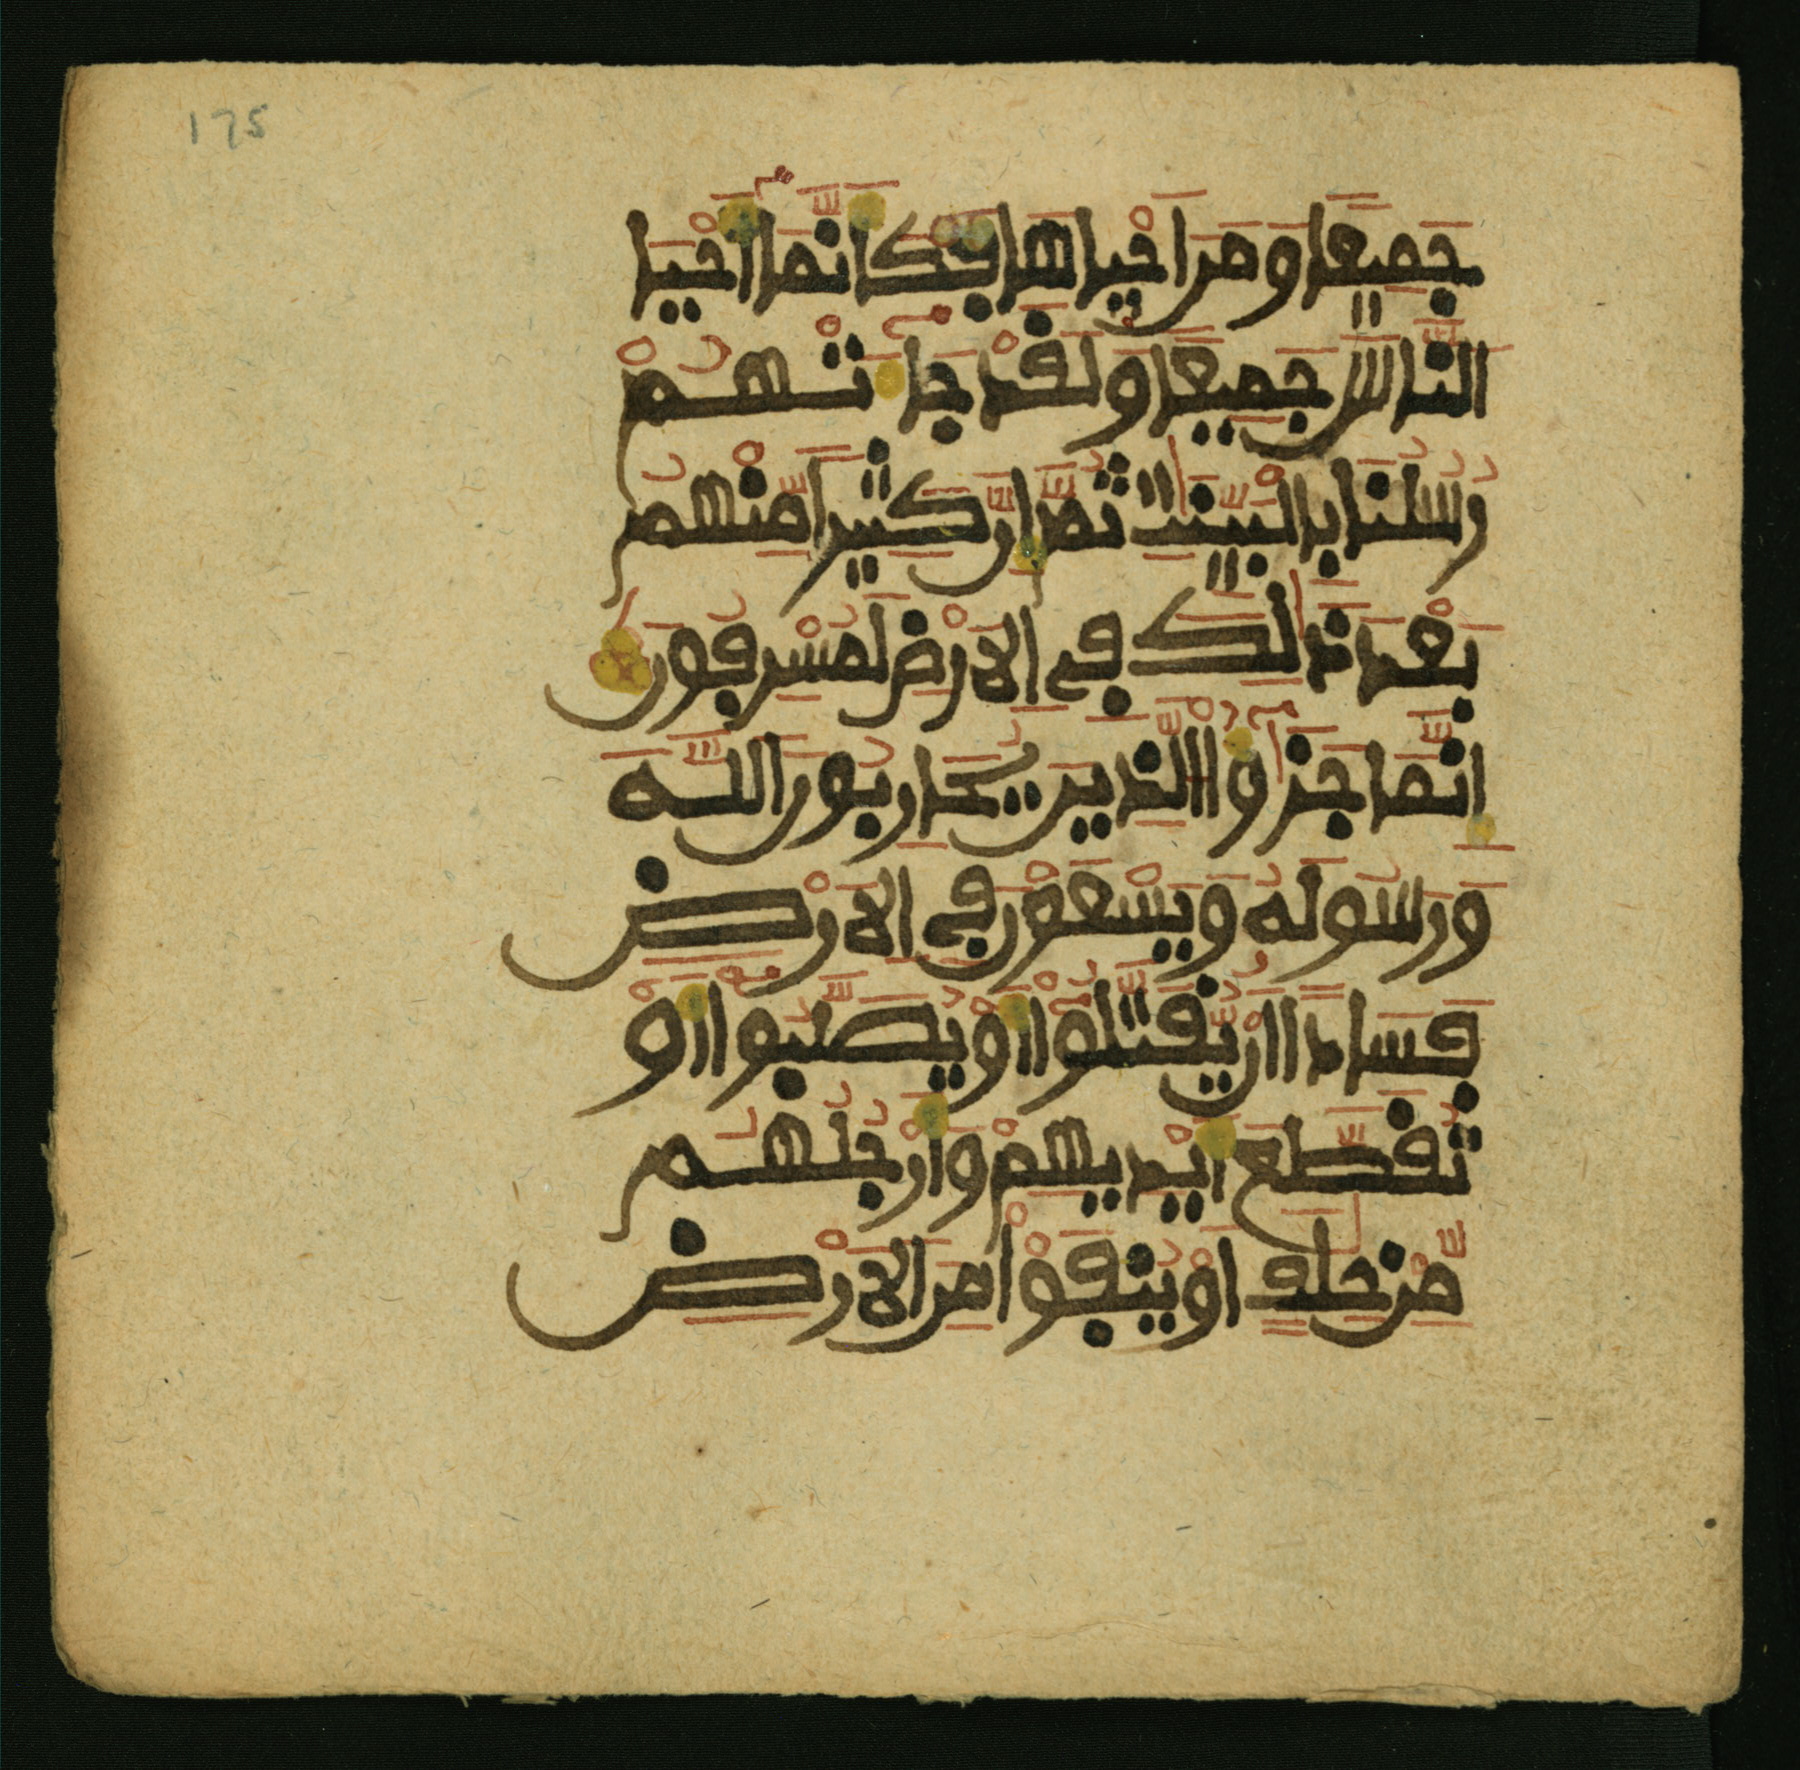 175
جَمِيعًا وَمَنَ اَحْيَاهَا فَكَأَنَّمَا أَحْيَا
النَّاسَ جَمِيعًا وَلَقَدْ جَاءَتْهُمْ
رُسُلُنَا بِالْبَيِّنَٰتِ ثُمَّ إِنَّ كَثِيرًا مِّنْهُم
بَعْدَ ذَٰلِكَ فِے الَارْضِ لَمُسْرِفُونَ
إِنَّمَا جَزَٰؤُا الَّذِينَ يُحَارِبُونَ اللَّهَ
وَرَسُولَهُ وَيَسْعَوْنَ فِے الَارْضِ
فَسَادًا اَنْ يُّقَتَّلُوا أَوْ يُصَلَّبُوا أَوْ
تُقَطَّعَ أَيْدِيهِمْ وَأَرْجُلُهُم
مِّنْ خِلَٰفٍ اَوْ يُنفَوْا مِنَ الَارْضِ